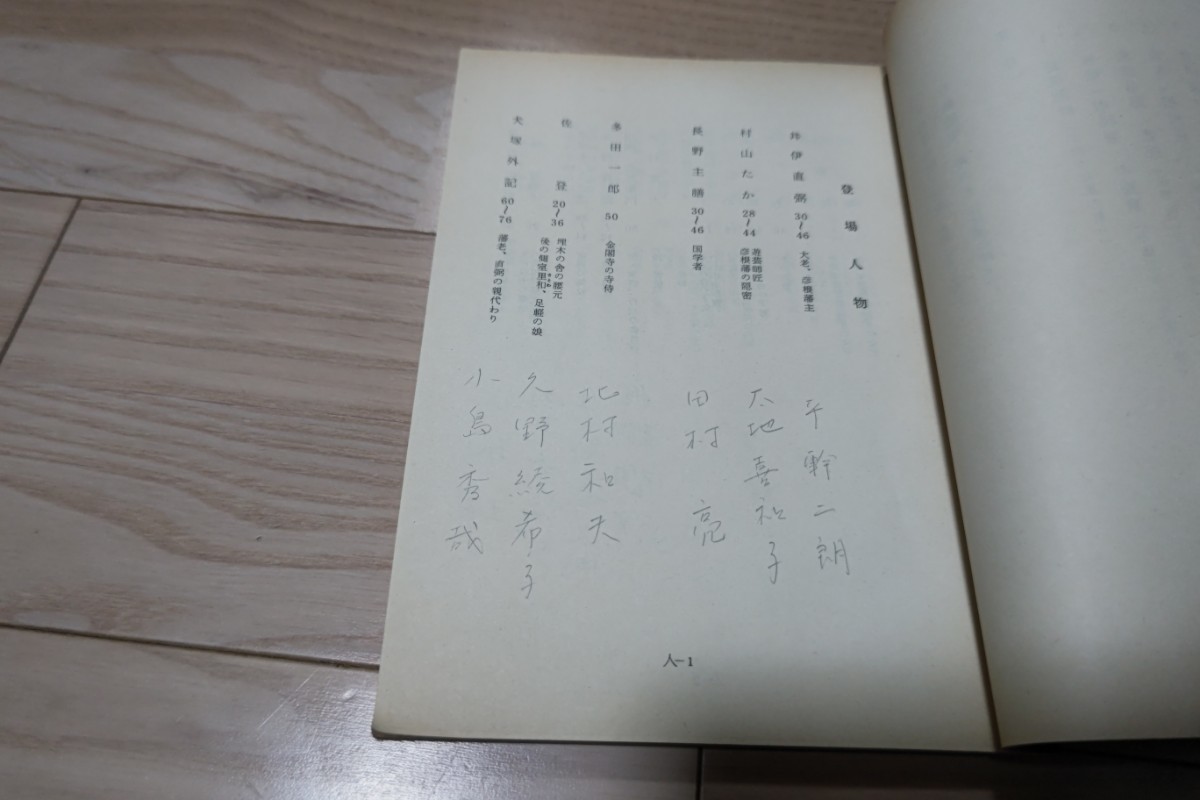 登場人物
井伊直弼 36〜46 大老、彦根藩主
平幹二朗
村山たか 28〜44 遊芸師匠 彦根藩の隠密
太地喜和子
長野主膳 30〜46 国学者
田村亮
多田一郎 50 金閣寺の寺侍
北村和夫
佐登 20〜36 埋木の舎の腰元 後の側室里和、足軽の娘
久野綾希子
犬塚外記 60〜76 藩老、直弼の親代わり
小島秀哉
人-1